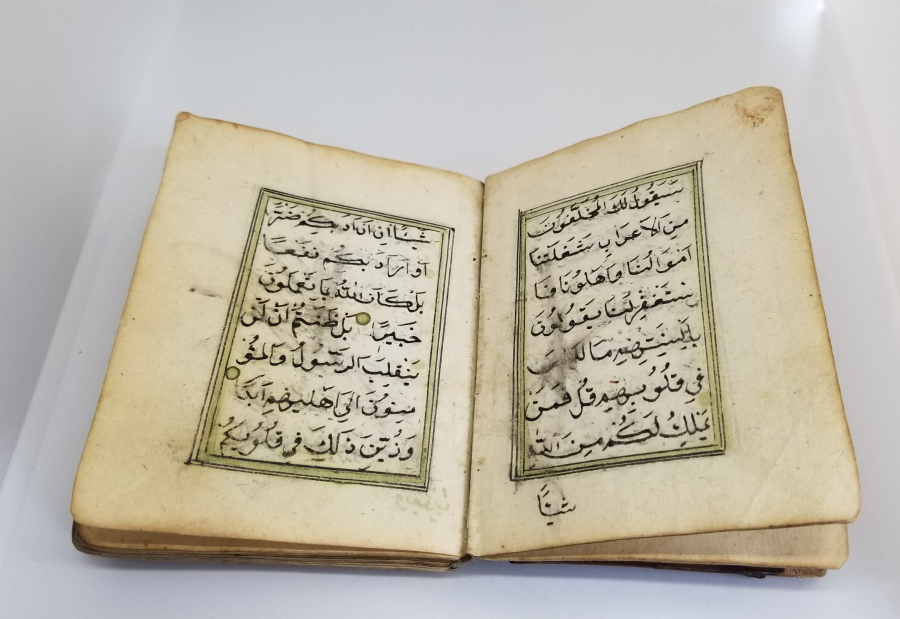 سَيَقُولُ لَكَ الْمُخَلَّفُونَ
مِنَ الْاَعْرَابِ شَغَلَتْنَا
اَمْوَالُنَا وَاَهْلُونَا فَا
سْتَغْفِرْ لَنَا يَقُولُونَ
بِاَلْسِنَتِهِمْ مَا لَيْسَ
فِي قُلُوبِهِمْ قُلْ فَمَنْ
يَمْلِكُ لَكُمْ مِنَ اللّٰهِ
شَيْئًا
شَيْئًا اِنْ اَرَادَ بِكُمْ ضَرًّا
اَوْ اَرَادَ بِكُمْ نَفْعًا
بَلْ كَانَ اللّٰهُ بِمَا تَعْمَلُونَ
خَبِيرًا بَلْ ظَنَنْتُمْ اَنْ لَنْ
يَنْقَلِبَ الرَّسُولُ وَالْمُؤْ
مِنُونَ اِلَى اَهْلِيهِمْ اَبَدًا
وَزُيِّنَ ذَلِكَ فِي قُلُوبِكُمْ